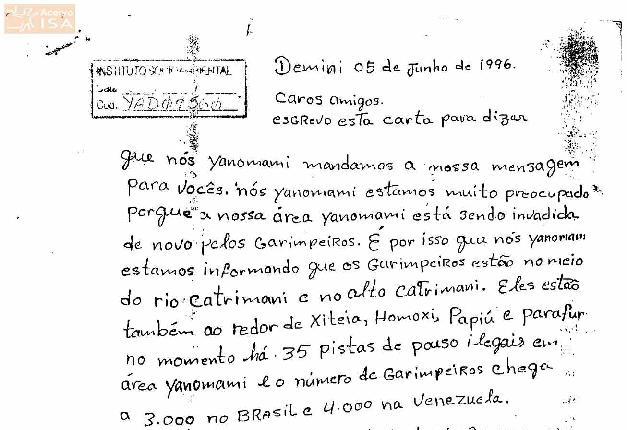 Acervo
ISA
INSTITUTO SOCIOAMBIENTAL
Data
Cod. YAD0
① Demini 05 de Junho de 1996.
Caros amigos.
esGrevo esta carta para dizar
que nós Yanomami mandamos a nossa mensagem
para vocês. nós yanomami estamos muito preocupados
porque a nossa área yanomami está sendo invadida
de novo pelos Garimpeiros. É por isso que nós yanomami
estamos informando que os Garimpeiros estão no meio
do rio Catrimani e no alto Catrimani. Eles estão
também ao redor de Xiteia, Homoxi, Papiú e parafuri
no momento há 35 pistas de pouso ilegais em
área yanomami e o número de Garimpeiros chega
a 3.000 no BRasil e 4.000 na Venezuela.